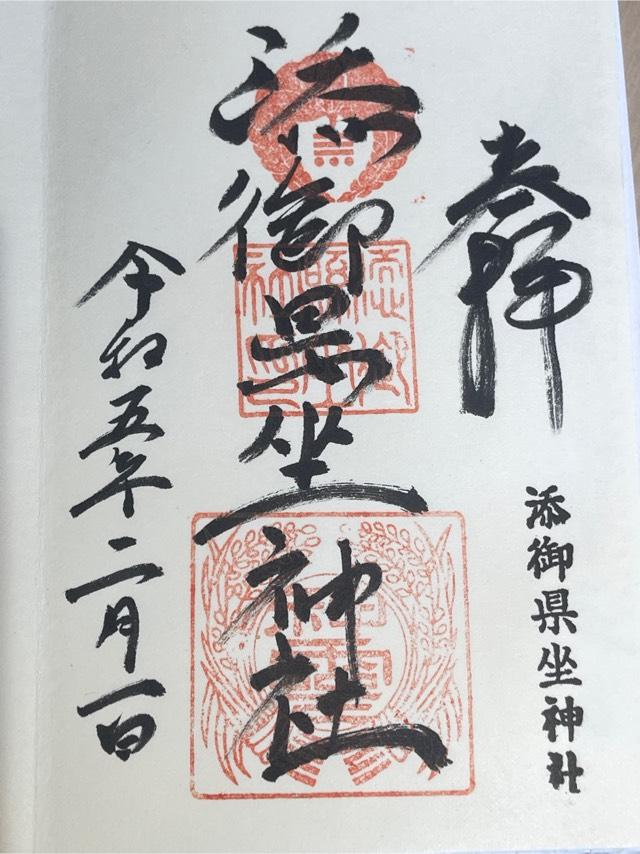 奉拝
添御県坐神社
添御県坐神社
令和五年二月一日